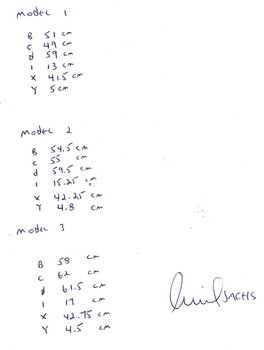 model 1
B 51 cm
C 49 cm
d 59 cm
I 13 cm
X 41.5 cm
Y 5 cm
model 2
B 54.5 cm
C 55 cm
d 59.5 cm
I 15.25 cm
X 42.25 cm
Y 4.8 cm
model 3
B 58 cm
C 62 cm
d 61.5 cm
I 17 cm
X 42.75 cm
Y 4.5 cm
SACHS